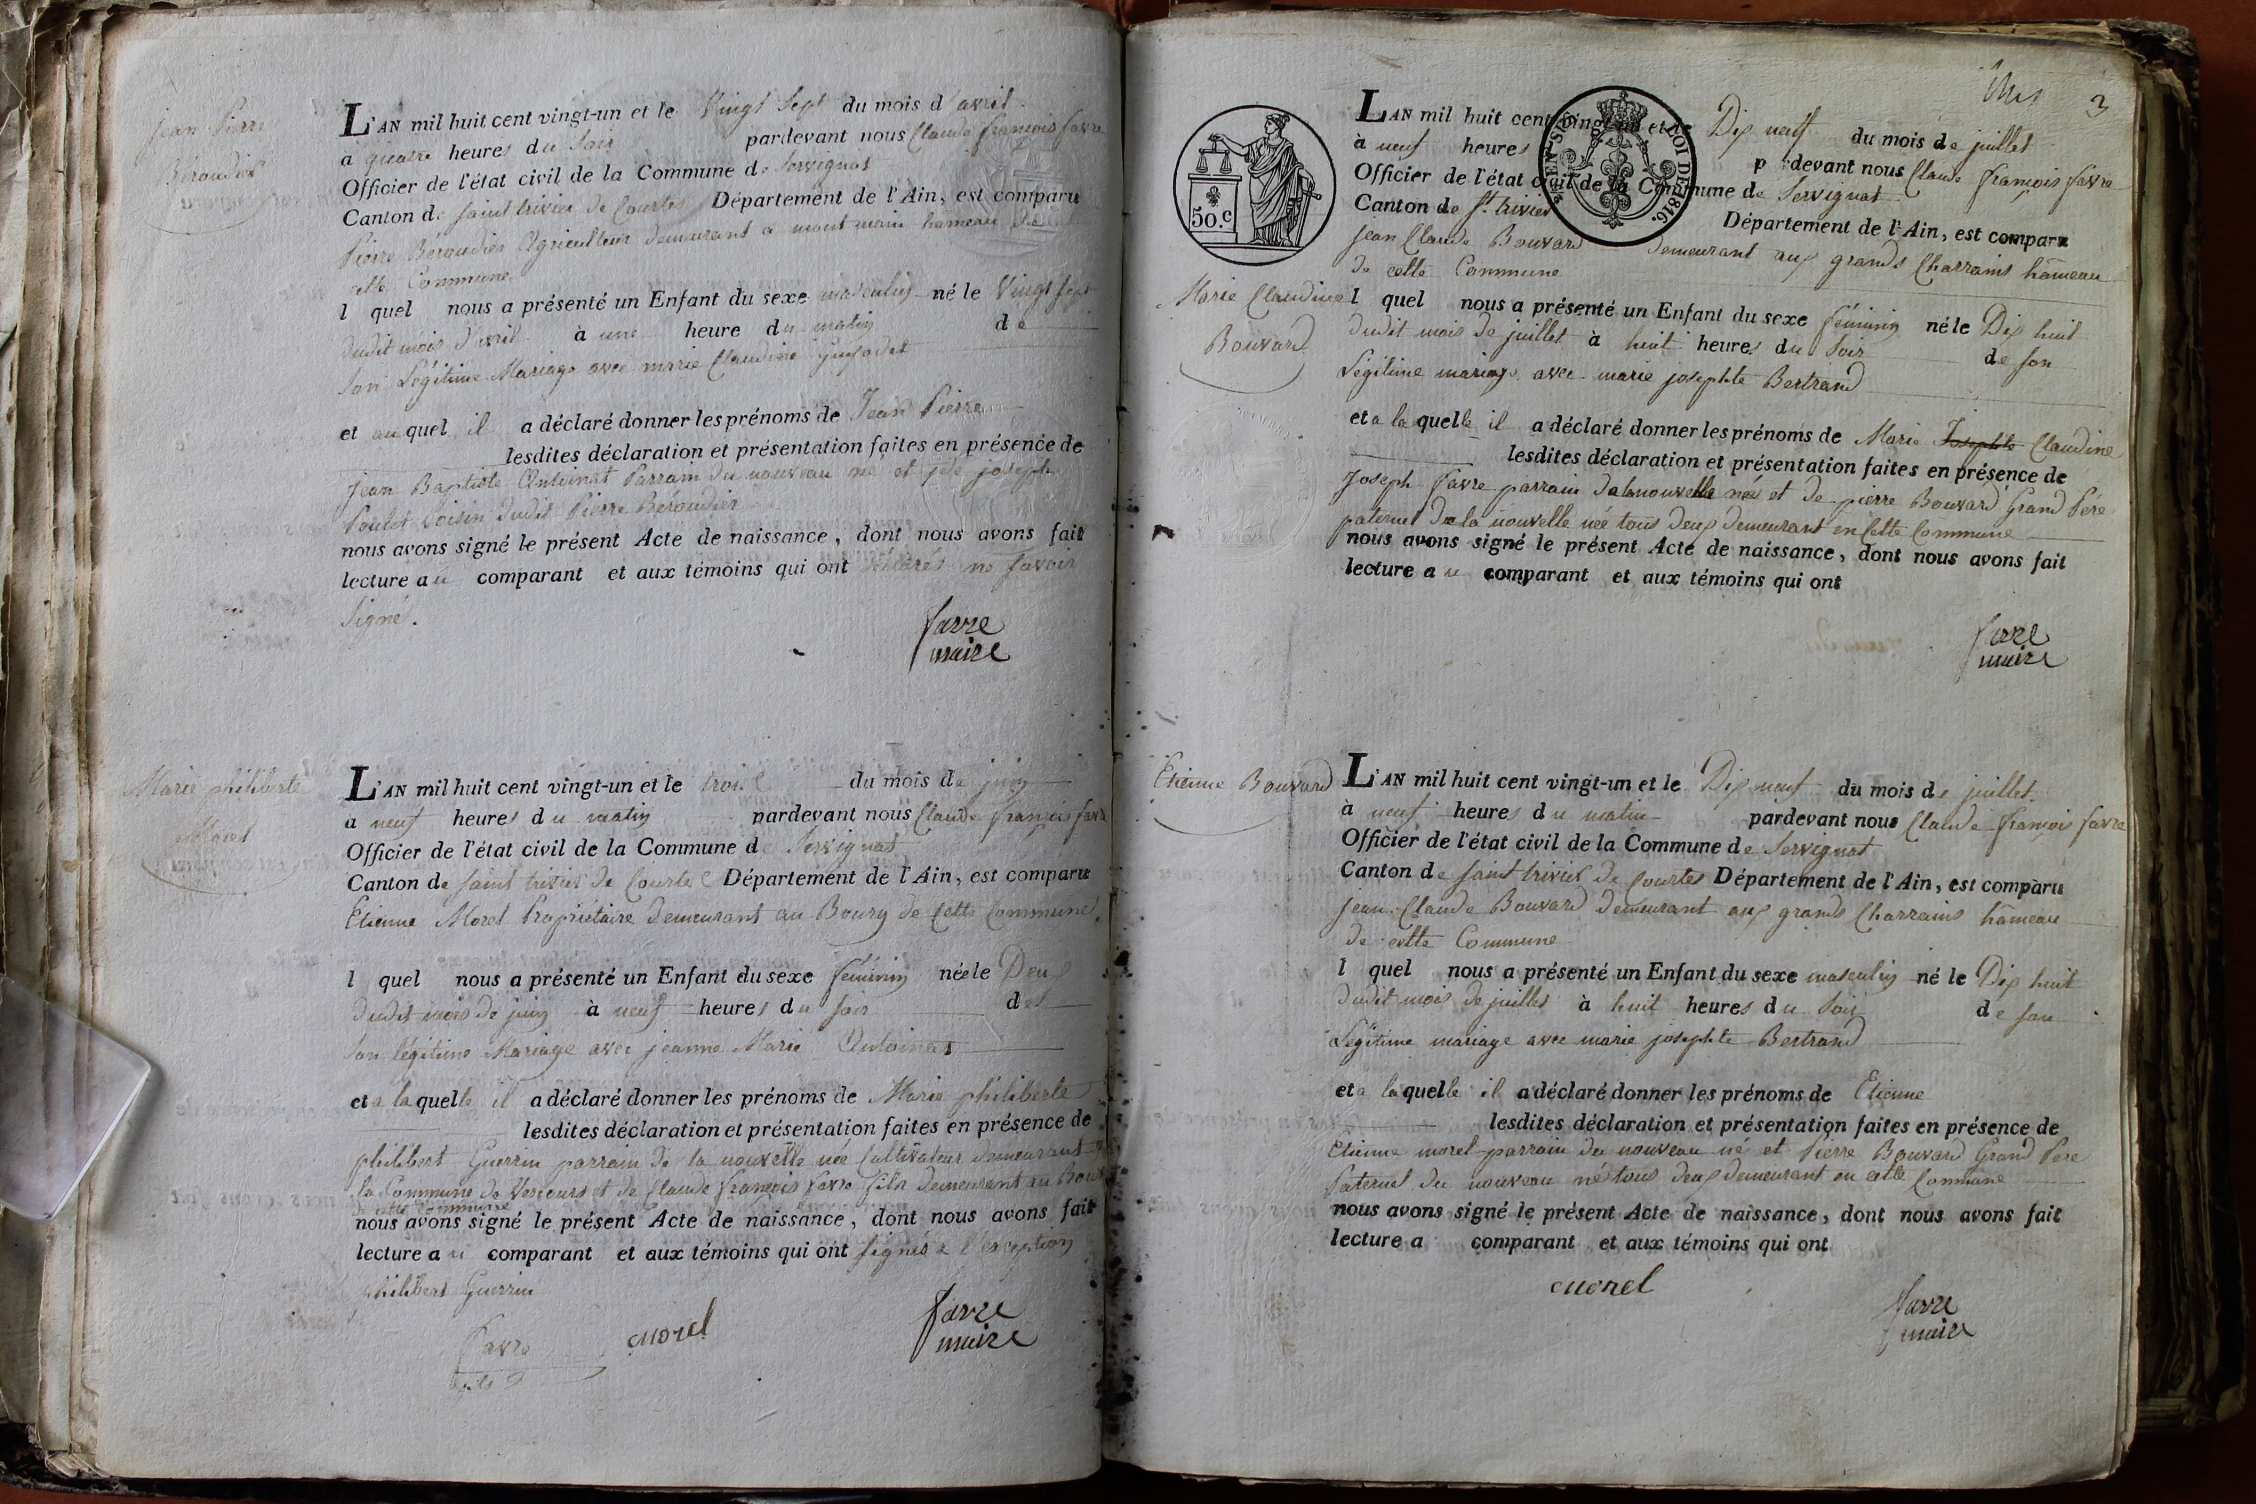 Jean Pierre
Béroudier
L'AN mil huit cent vingt-un et le Vingt Sept du mois d'avril
a quatre heures du Soir pardevant nous Claude françois favre
Officier de l'état civil de la Commune de Servignat
Canton de saint trivier de Courtes Département de l'Ain, est comparu
Pierre Béroudier Agriculteur demeurant a hameau de
cette Commune
l quel nous a présenté un Enfant du sexe masculin né le Vingt sept
dudit mois d'avril à une heure du matin de
son Légitime Mariage avec marie Claudine
et au quel il a déclaré donner les prénoms de Jean Pierre
lesdites déclaration et présentation faites en présence de
Jean Baptiste Antoinat Parrain du nouveau né et de joseph
Poulet Voisin dudit Pierre Béroudier
nous avons signé le présent Acte de naissance, dont nous avons fait
lecture au comparant et aux témoins qui ont ne savoir
signé.
favre
maire
Marie philiberte
Morel
L'AN mil huit cent vingt-un et le trois du mois de juin
a neuf heures du matin pardevant nous Claude françois favre
Officier de l'état civil de la Commune de Servignat
Canton de saint trivier de Courtes Département de l'Ain, est comparu
Etienne Morel Propriétaire demeurant au Bourg de Cette Commune
l quel nous a présenté un Enfant du sexe féminin née le Deux
dudit mois de juin à neuf heures du soir de
son légitime Mariage avec jeanne Marie Antoinat
et a la quelle il a déclaré donner les prénoms de Marie philiberte
lesdites déclaration et présentation faites en présence de
philibert Guerrin parrain de la nouvelle née Cultivateur demeurant
la Commune de Vescours et de Claude françois favre fils demeurant au Bourg
de cette Commune
nous avons signé le présent Acte de naissance, dont nous avons fait
lecture au comparant et aux témoins qui ont signés a l'exception
philibert Guerrin
favre
fils
morel
favre
maire
3
50.C
LOI DE 1816.
L'AN mil huit cent vingt-un et le Dix neuf du mois de juillet
à neuf heures pardevant nous Claude françois favre
Officier de l'état civil de la Commune de Servignat
Canton de St. trivier Département de l'Ain, est comparu
Jean Claude Bouvard demeurant aux grands Charrains hâmeau
de cette Commune
Marie Claudine
Bouvard
l quel nous a présenté un Enfant du sexe féminin né le Dix huit
dudit mois de juillet à huit heures du Soir de son
Légitime mariage avec marie josephte Bertrand
et a la quelle il a déclaré donner les prénoms de Marie Josephte Claudine
lesdites déclaration et présentation faites en présence de
Joseph favre parrain de la nouvelle née et de pierre Bouvard Grand Père
paternel de la nouvelle née tous deux demeurant en Cette Commune
nous avons signé le présent Acte de naissance, dont nous avons fait
lecture au comparant et aux témoins qui ont
favre
maire
Etienne Bouvard
L'AN mil huit cent vingt-un et le Dix neuf du mois de juillet
à neuf heures du matin pardevant nous Claude françois favre
Officier de l'état civil de la Commune de Servignat
Canton de saint trivier de Courtes Département de l'Ain, est comparu
jean Claude Bouvard demeurant aux grands Charrains hâmeau
de cette Commune
l quel nous a présenté un Enfant du sexe masculin né le Dix huit
dudit mois de juillet à huit heures du Soir de son
Légitime mariage avec marie josephte Bertrand
et a laquelle il a déclaré donner les prénoms de Etienne
lesdites déclaration et présentation faites en présence de
Etienne morel parrain du nouveau né et Pierre Bouvard Grand Père
Paternel du nouveau né tous deux demeurant en cette Commune
nous avons signé le présent Acte de naissance, dont nous avons fait
lecture a comparant et aux témoins qui ont
morel
favre
maire